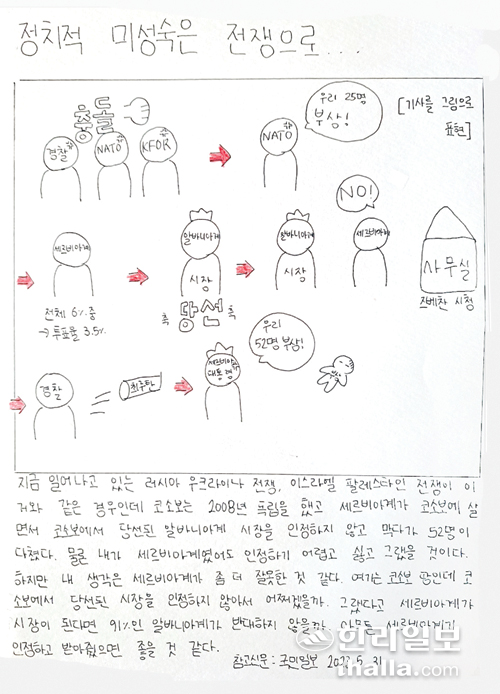 정치적 미성숙은 전쟁으로...
충돌
경찰
NATO
KFOR
NATO
우리 25명
부상!
[기사를 그림으로
표현]
세르비아계
전체 6% 중
→ 투표율 3.5%
알바니아계
시장
축 당선 축
알바니아계
시장
NO!
세르비아계
사무실
즈베찬 시청
경찰
최루탄
세르비아
대통령
우리
52명 부상!
지금 일어나고 있는 러시아 우크라이나 전쟁, 이스라엘 팔레스타인 전쟁이 이
거와 같은 경우인데 코소보는 2008년 독립을 했고 세르비아계가 코소보에 살
면서 코소보에서 당선된 알바니아계 시장을 인정하지 않고 막다가 52명이
다쳤다. 물론 내가 세르비아계였어도 인정하기 어렵고 싫고 그랬을 것이다.
하지만 내 생각은 세르비아계가 좀 더 잘못한 것 같다. 여기는 코소보 땅인데 코
소보에서 당선된 시장을 인정하지 않아서 어쩌겠을까. 그랬다고 세르비아계가
시장이 된다면 91%인 알바니아계가 반대하지 않을까. 아무튼 세르비아계가
인정하고 받아줬으면 좋을 것 같다.
참고신문: 국민일보 2023. 5. 31
한라일보
ihalla.com